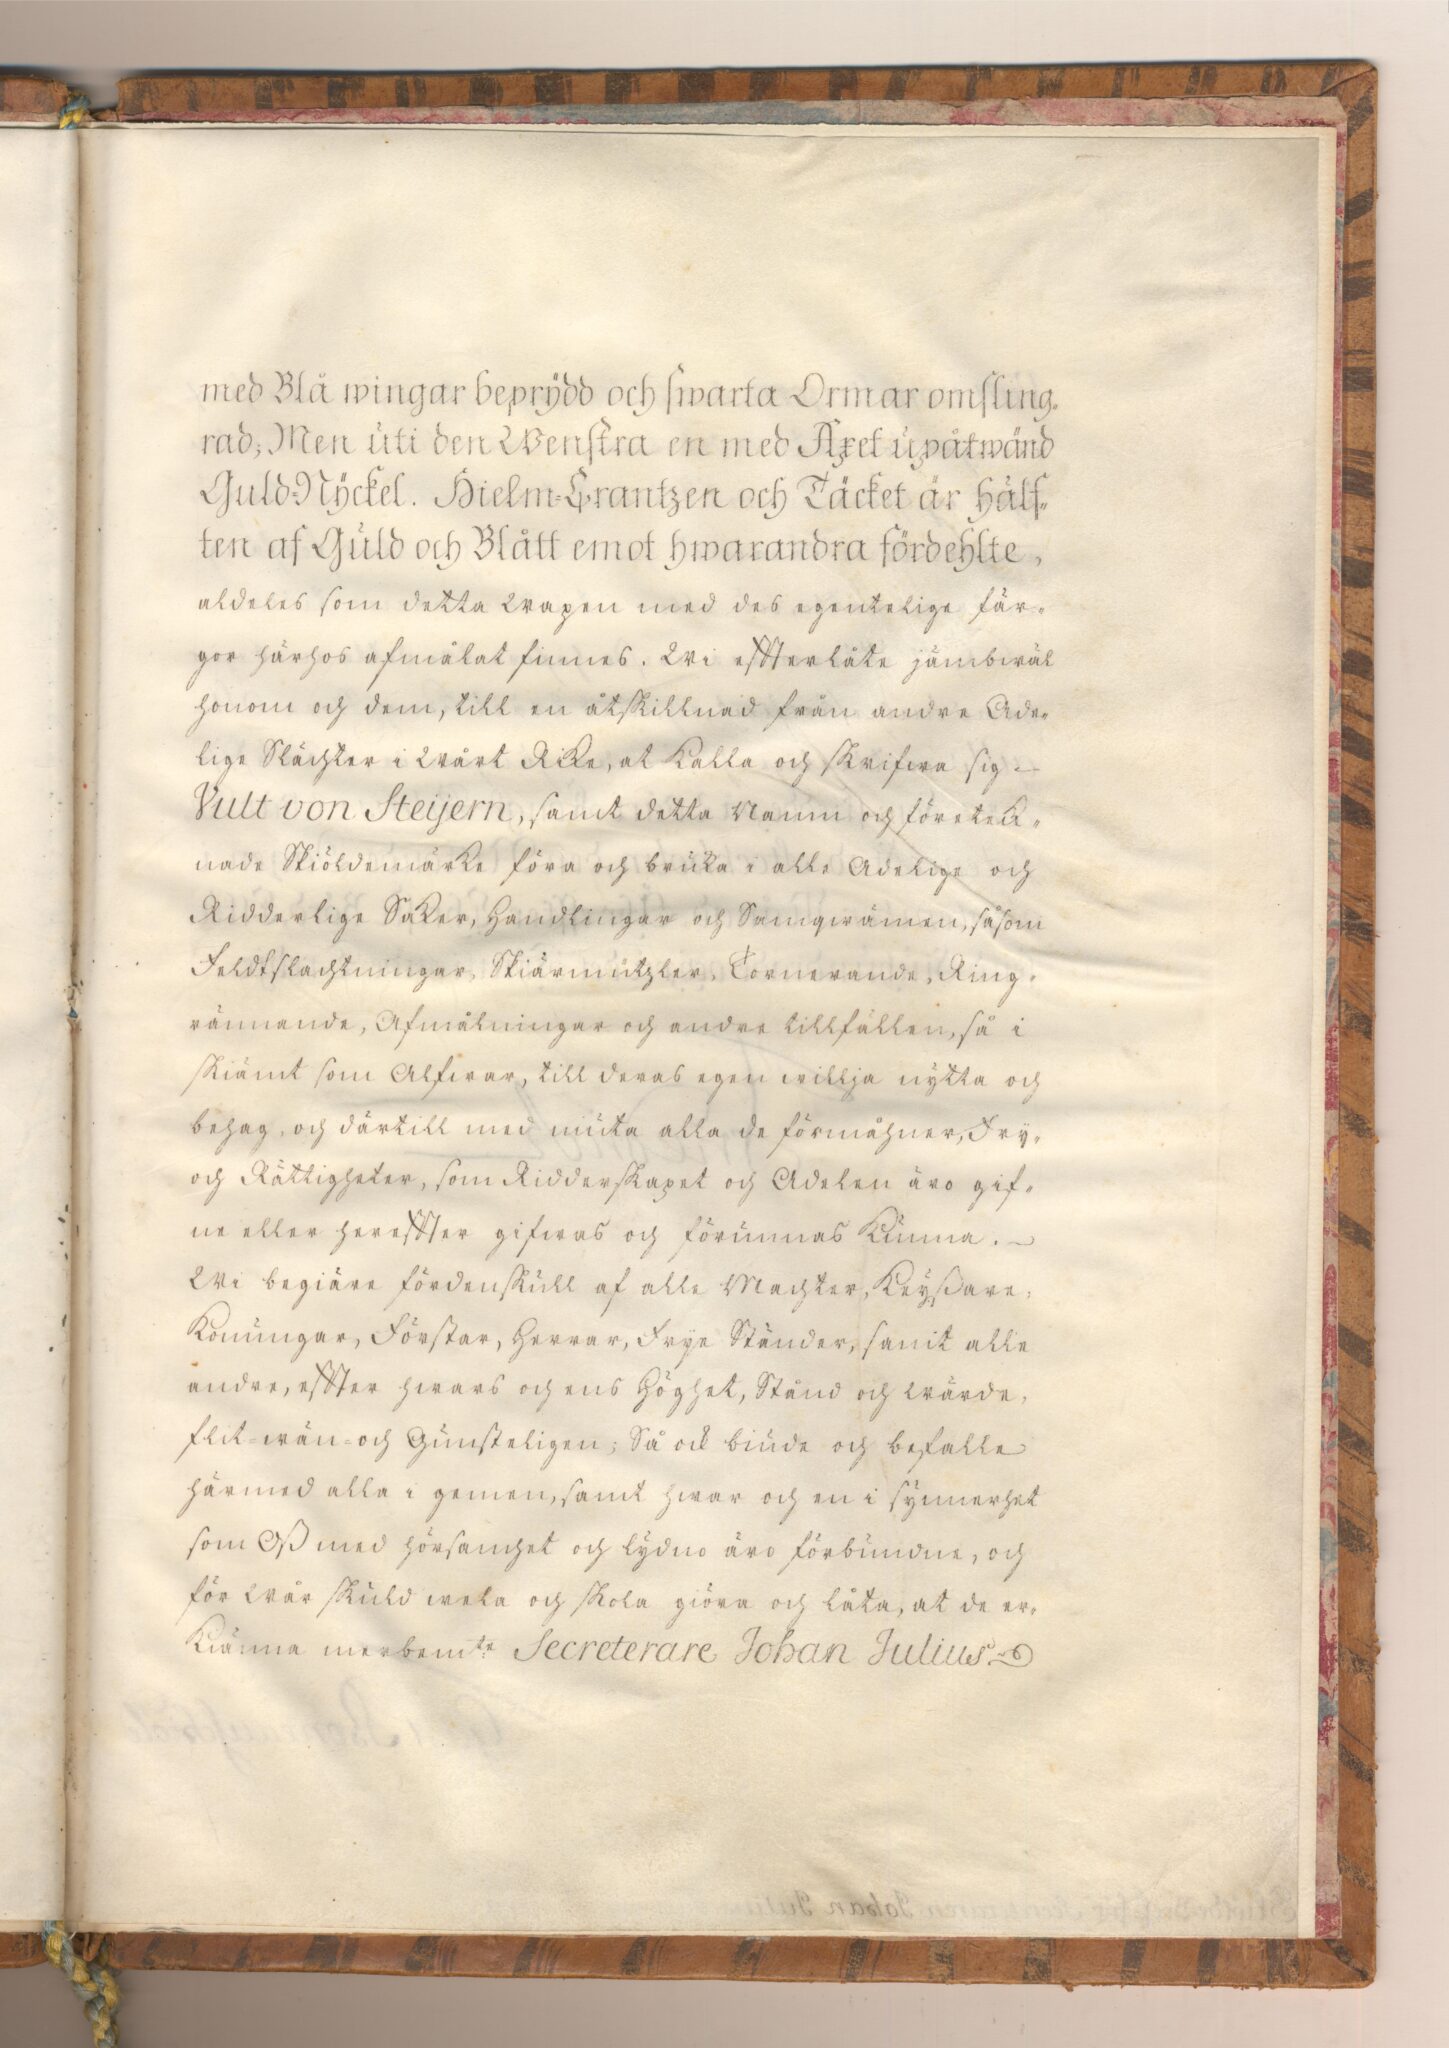 med Blå wingar beprÿdd och swarta Ormar omsling-
rad; Men uti den Wenstra en med Axet upåtwänd
Guld-Nÿckel. Hielm-Crantzen och Täcket är hälf-
ten af Guld och Blått emot hwarandra fördehlte,
aldeles som detta Wapen med des egentelige fär-
gor härhos afmålat finnes. Wi effterlåte jämbwäl
honom och dem, till en åtskillnad från andre Ade-
lige Slächter i Wårt Rike, at kalla och skrifwa sig
Vult von Steijern, samt detta Namn och företeck-
nade Skiöldemärke föra och bruka i alle Adelige och
Ridderlige Saker, Handlingar och Samqwämen, såsom
Feldtslachtningar, Skiärmützler, Tornerande, Ring-
rännande, Afmålningar och andre tillfällen, så i
skiämt som Alfwar, till deras egen willja nytta och
behag, och därtill med niuta alla de förmåhner, Fry-
och Rättigheter, som Ridderskapet och Adelen äro gif-
ne eller hereffter gifwas och förunnas kunna.
Wi begiäre fördenskull af alle Machter, Keyßare,
Konungar, Förstar, Herrar, Frye Ständer, samt alle
andre, effter hwars och ens Höghet, Stånd och Wärde,
flit-wän-och Gunsteligen; Så ock biude och befalle
härmed alla i gemen, samt hwar och en i synnerhet
som Oß med hörsamhet och lydno äro förbundne, och
för Wår skuld wela och skola giöra och låta, at de er-
kiänna merbemte Secreterare Johan Julius